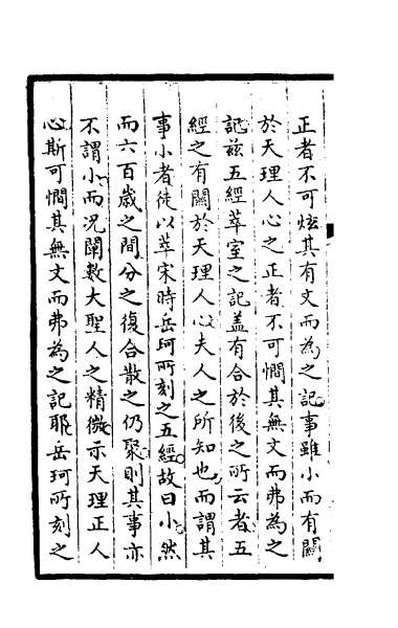 正者不可炫其有文而為之記事雖小而有關
於天理人心之正者不可憪其無文而弗為之
記茲五經萃室之記蓋有合於後之所云者五
經之有關於天理人心夫人之所知也而謂其
事小者徒以萃宋時岳珂所刻之五經故曰小然
而六百歲之間分之復合散之仍聚則其事亦
不謂小而况闡數大聖人之精微示天理正人
心斯可憪其無文而弗為之記耶岳珂所刻之